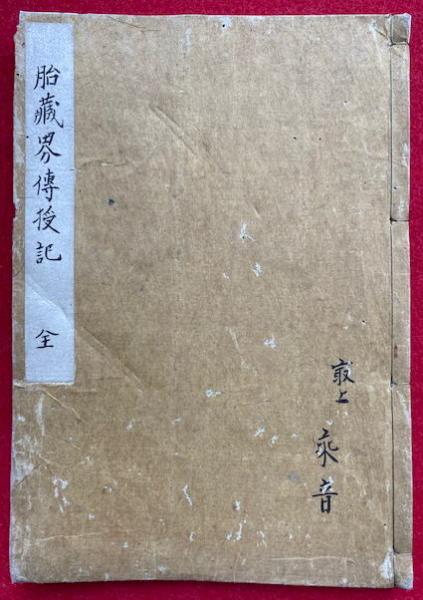 胎藏界傳授記
全
最上
音